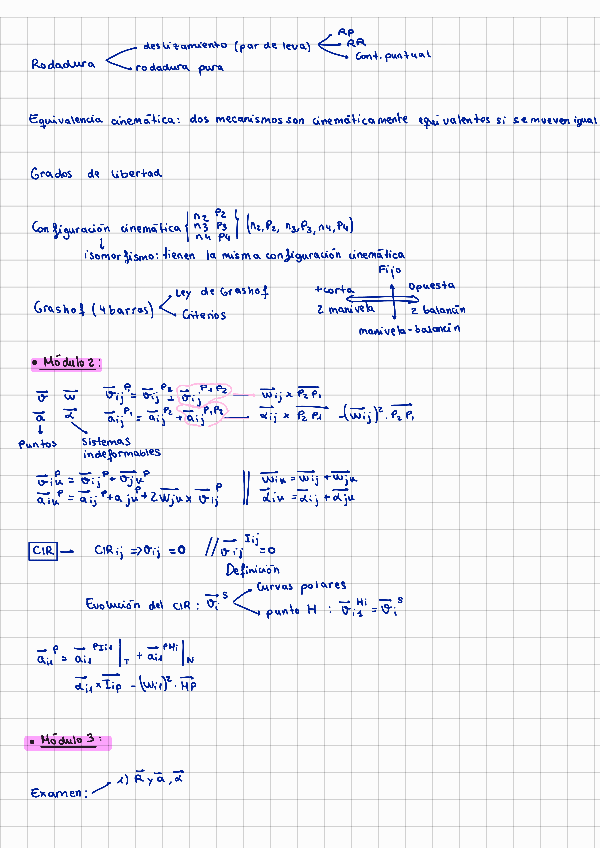 Rodadura
deslizamiento (par de leva)
RP
RR
Cont. puntual
rodadura pura
Equivalencia cinemática: dos mecanismos son cinemáticamente equivalentes si se mueven igual
Grados de libertad
Configuración cinemática { n2 P2 n3 P3 n4 P4 } (n2,P2, n3,P3, n4,P4)
↓
isomorfismo: tienen la misma configuración cinemática
Grashof (4 barras)
Ley de Grashof
Criterios
Fijo
+corta
Opuesta
2 manivela
2 balancín
manivela-balancín
• Módulo 2:
v⃗ w⃗ v⃗ij^P1 = v⃗ij^P2 + v⃗ij^P1P2 — w⃗ij × P2P1
a⃗ α⃗ a⃗ij^P1 = a⃗ij^P2 + a⃗ij^P1P2 — α⃗ij × P2P1 - (w⃗ij)² · P2P1
Puntos
Sistemas
indeformables
v⃗ik^P = v⃗ij^P + v⃗jk^P || w⃗ik = w⃗ij + w⃗jk
a⃗ik^P = a⃗ij^P + ajk^P + 2w⃗jk × v⃗ij^P || α⃗ik = α⃗ij + α⃗jk
CIR → CIRij ⇒ vij = 0 // v⃗ij^Iij = 0
Definición
Evolución del CIR: v⃗i^S
Curvas polares
punto H : v⃗i1^Hi = v⃗i^S
a⃗i1^P = a⃗i1^PIi1 |T + a⃗i1^PHi |N
α⃗i1 × IiP - (wi1)² · HP
• Módulo 3:
Examen:
1) R⃗ y a⃗, α⃗